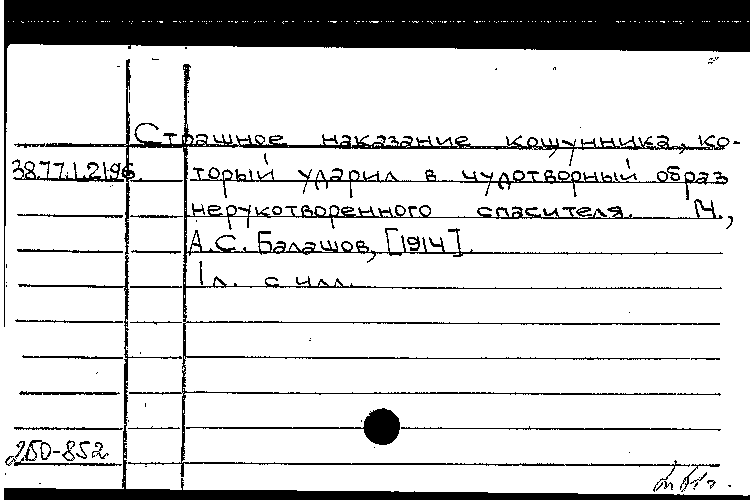 Страшное наказание кощунника, ко-
38.77.1.2196. торый ударил в чудотворный образ
нерукотворенного спасителя. М.,
А.С. Балашов, [1914].
1 л. с илл.
250-852